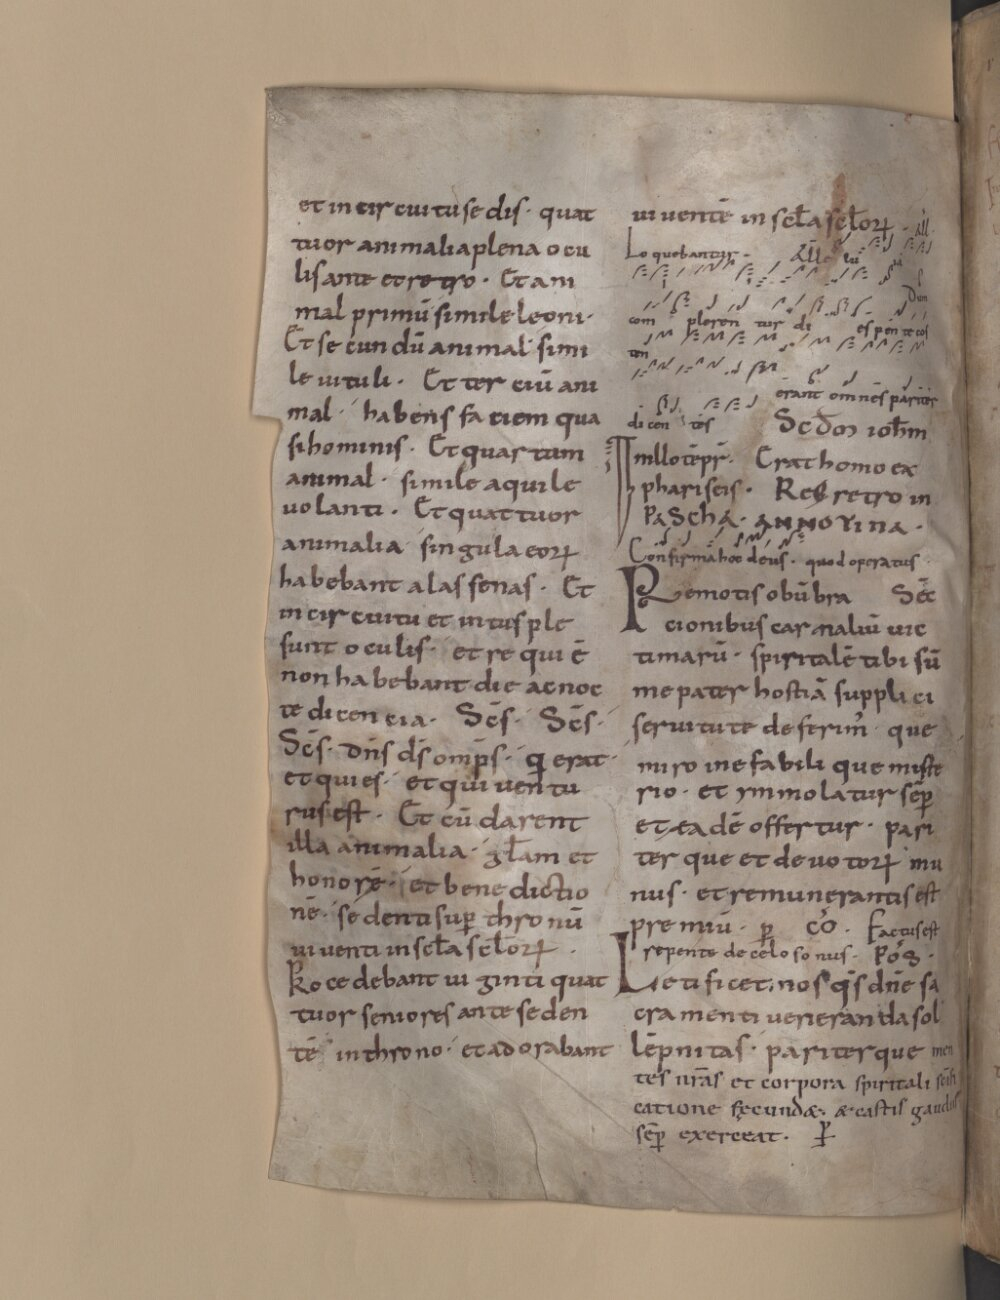 et in circuitu sedis · quat
tuor animalia plena ocu
lis ante et retro · Et ani
mal primū simile leoni ·
Et secundū animal simi
le uituli · Et terciū ani
mal · habens faciem qua
si hominis · Et quartum
animal · simile aquile
uolanti · Et quattuor
animalia singula eoꝝ
habebant alas senas · Et
in circuitu et intus ple
sunt oculis · et requiē
non habebant die ac noc
te dicencia · Scs̄ · Scs̄ ·
Scs̄ · dn̄s ds̄ omps̄ · q̄ erat ·
et qui es · et qui uentu
rus est · Et cū darent
illa animalia · glām et
honorē · et benedictio
nē · sedenti sup̄ thronū
uiuenti in scl̄a scl̄oꝝ ·
Procedebant uiginti quat
tuor seniores ante seden
tē in throno · et adorabant
uiuentē in scl̄a scl̄oꝝ · All
Loquebantur · Alle lu ia
Dum
com pleren tur di es pen te cos
ten
erant omnes pariter
dicen tes Scd̄m ioh̄m
In illo tēpr̄ · Erat homo ex
phariseis · Reg̃ retro in
PaScha · ANNOTINa ·
Confirma hoc deus · quod operatus
Remotis obūbra Sec̄
cionibus carnaliū uic
timarū · spiritalē tibi sū
me pater hostiā supplici
seruitute deferim̄ · que
miro inefabili que miste
rio · et ymmolatur sēp̄
et eadē offertur · pari
ter que et deuotoꝝ mu
nus · et remunerantis est
premiū · p̄ CO̅ · Factus est
repente de celo sonus · Pos̄ ·
Letificet nos qs̄ dn̄e sa
cramenti ueneranda sol
lēpnitas · pariterque men
tes nrās et corpora spiritali scīfi
catione fecundæ · & castis gaudiis
sēp̄ exerceat · p̄